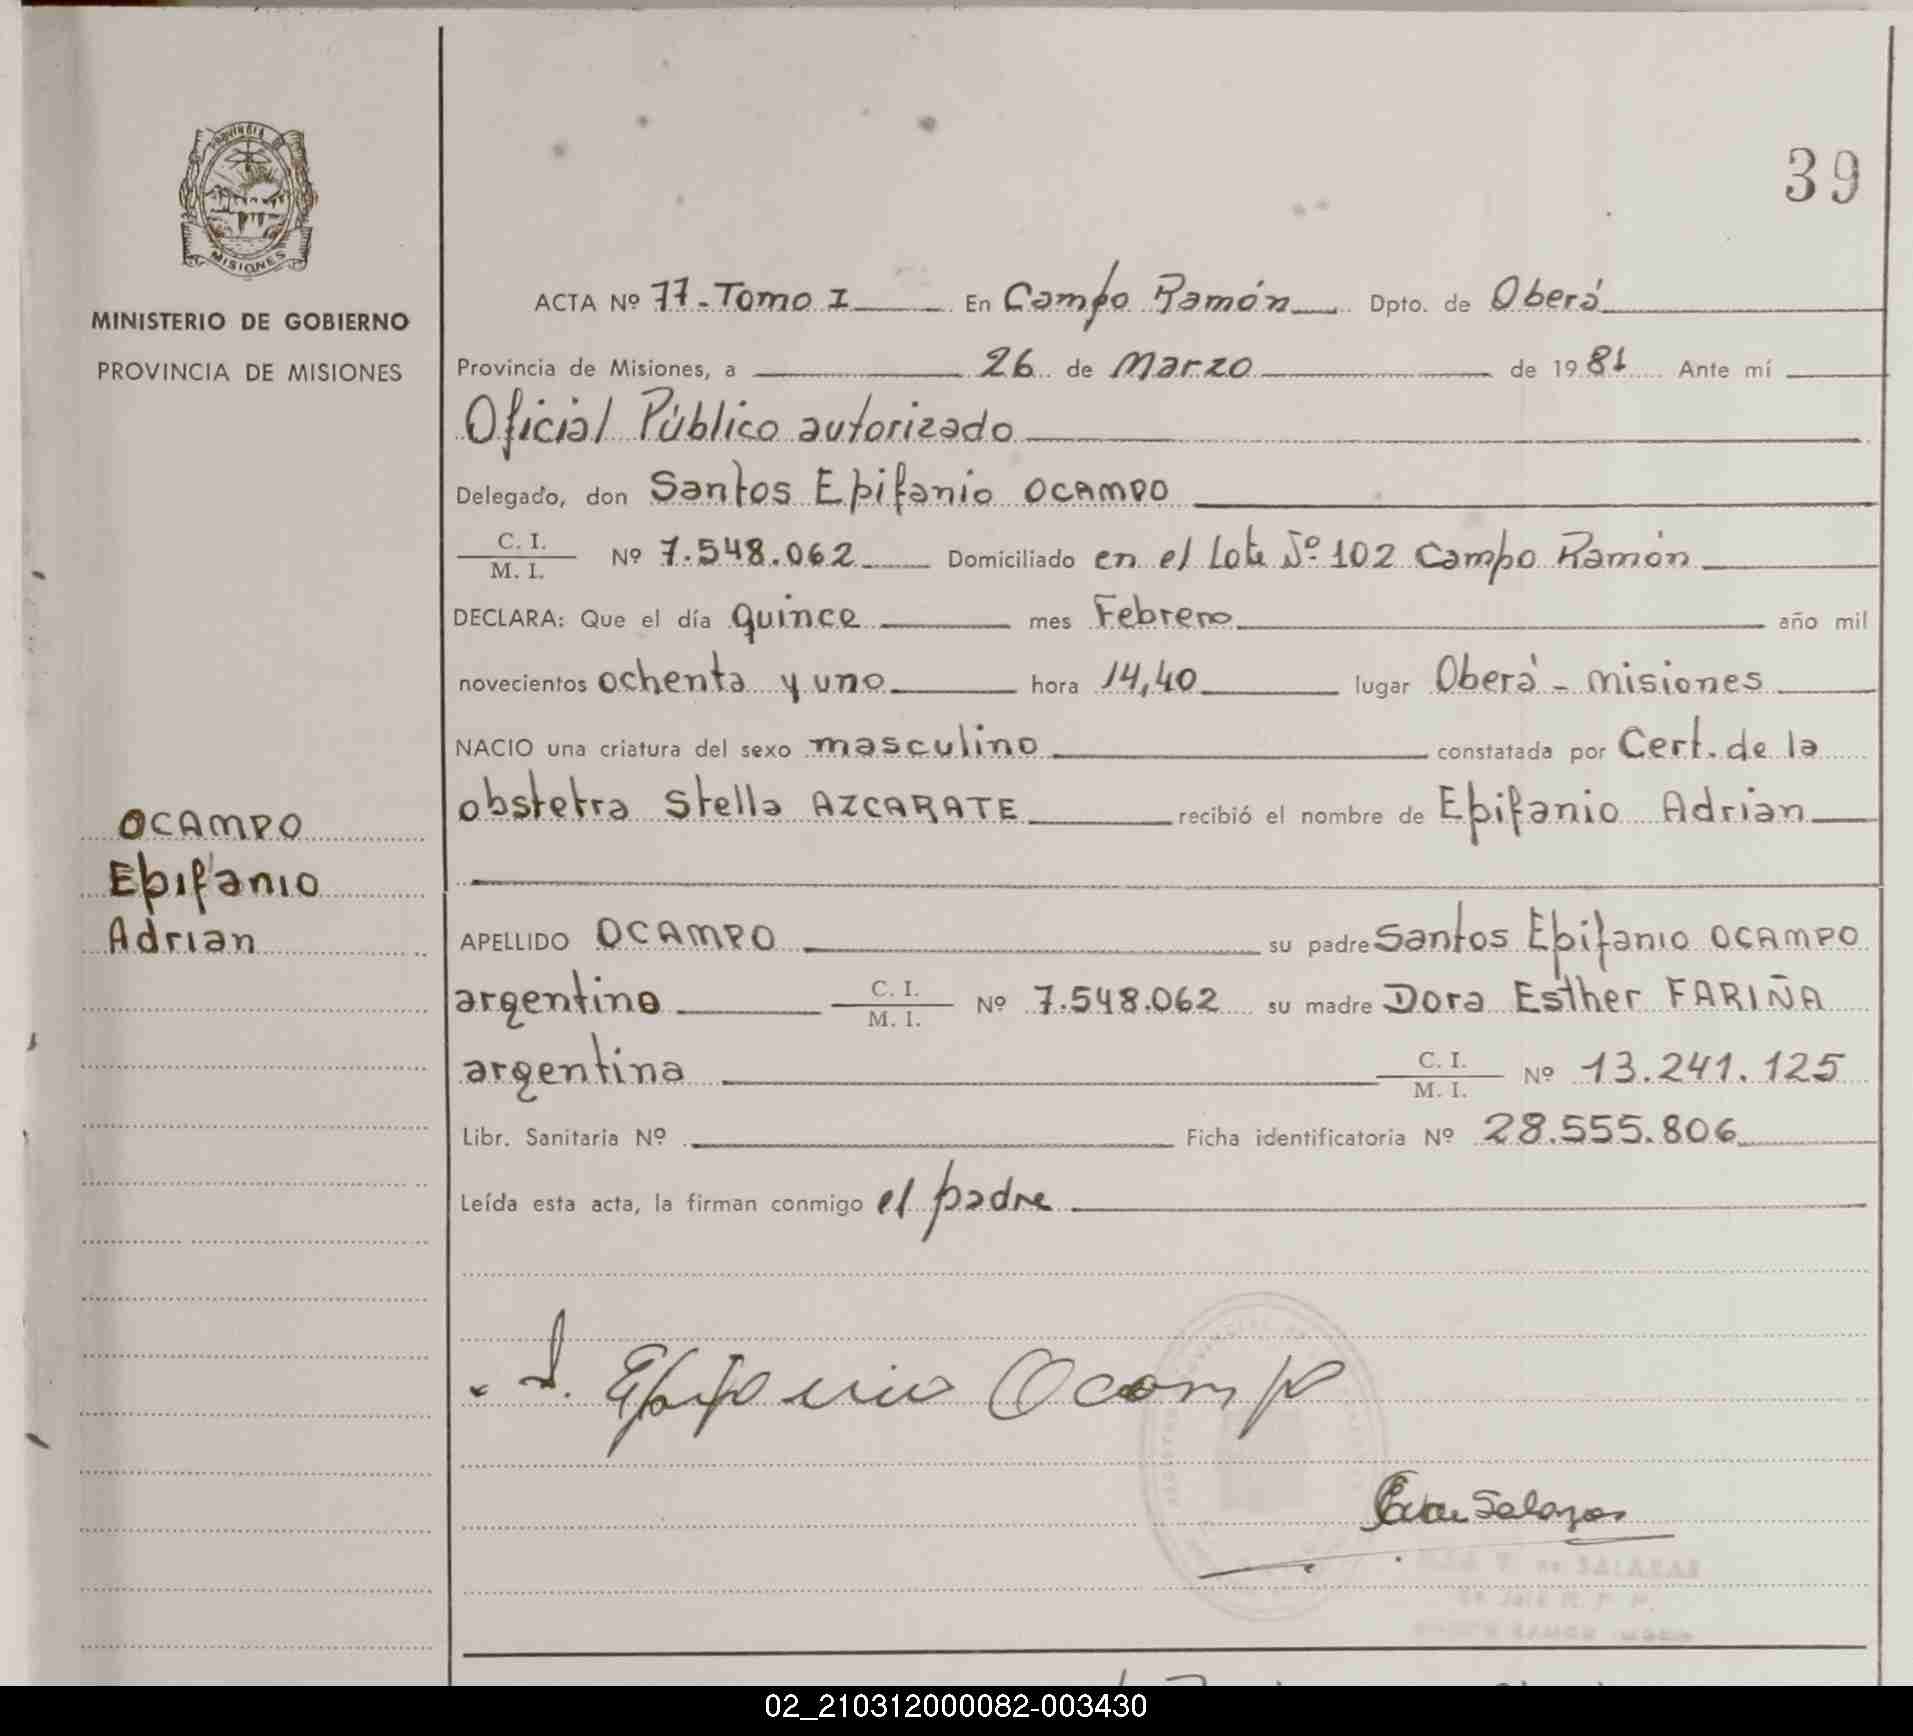 PROVINCIA
MISIONES
MINISTERIO DE GOBIERNO
PROVINCIA DE MISIONES
39
ACTA Nº 77-Tomo I En Campo Ramón Dpto. de Oberá
Provincia de Misiones, a 26 de Marzo de 1981 Ante mí
Oficial Público autorizado
Delegado, don Santos Epifanio OCAMPO
C. I.
M. I.
Nº 7.548.062 Domiciliado en el Lote Nº 102 Campo Ramón
DECLARA: Que el día quince mes Febrero año mil
novecientos ochenta y uno hora 14,40 lugar Oberá - misiones
NACIO una criatura del sexo masculino constatada por Cert. de la
obstetra Stella AZCARATE recibió el nombre de Epifanio Adrian
OCAMPO
Epifanio
Adrian
APELLIDO OCAMPO su padre Santos Epifanio OCAMPO
argentino C. I. M. I. Nº 7.548.062 su madre Dora Esther FARIÑA
argentina C. I. M. I. Nº 13.241.125
Libr. Sanitaria Nº Ficha identificatoria Nº 28.555.806
Leída esta acta, la firman conmigo el padre
S. Epifanio Ocampo
Salazar
de SALAZAR
02_210312000082-003430